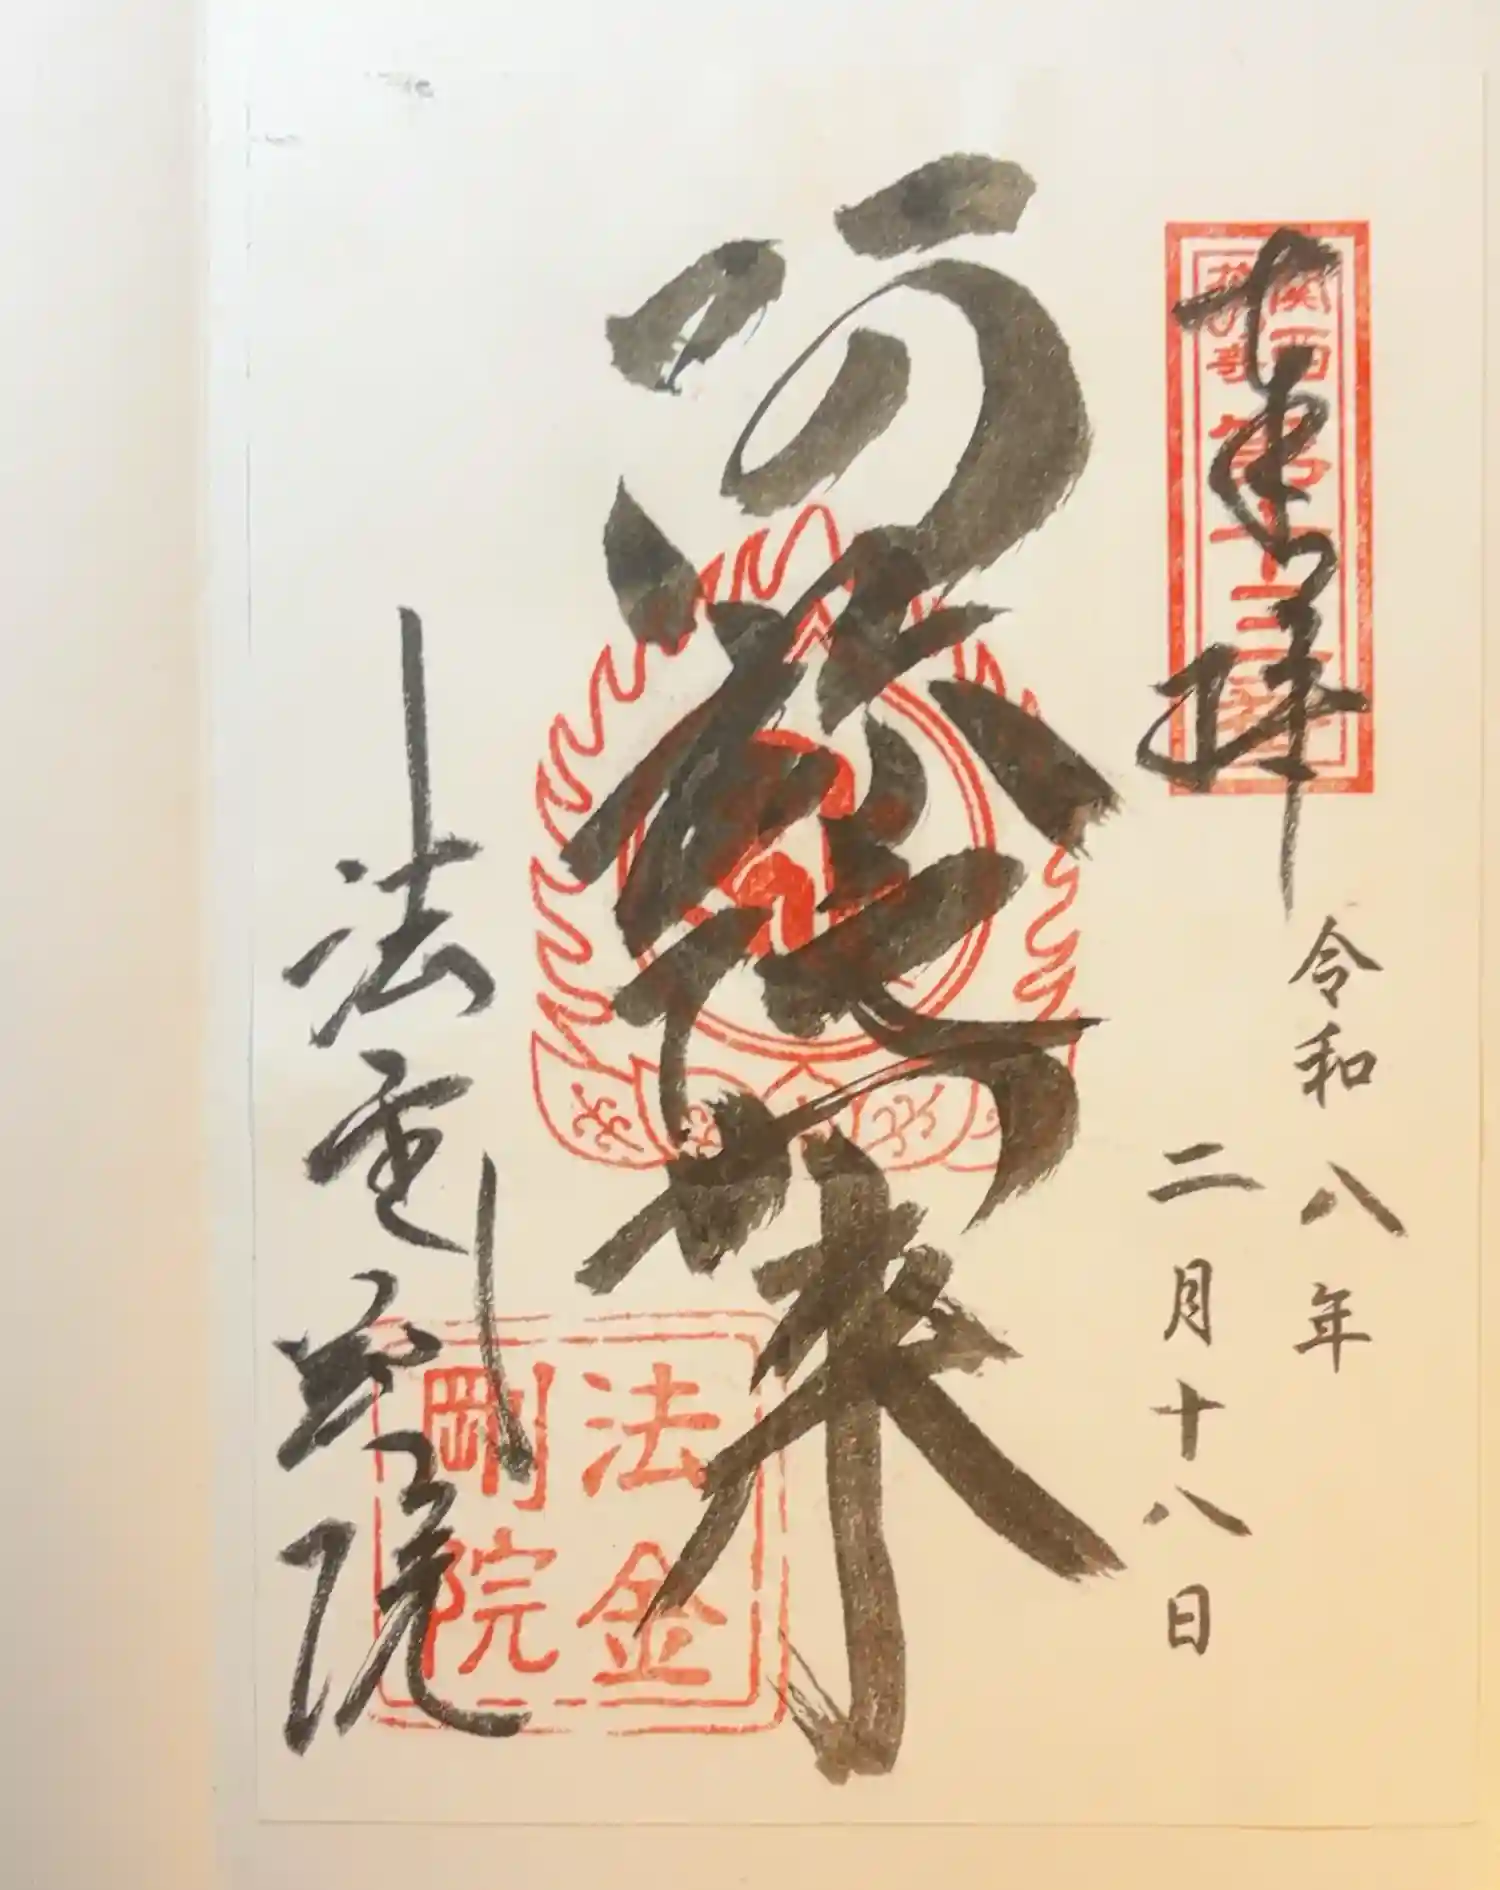 奉拝
関西
花の寺
第十三番
令和八年
二月十八日
阿弥陀如来
法金剛院
法金
剛院